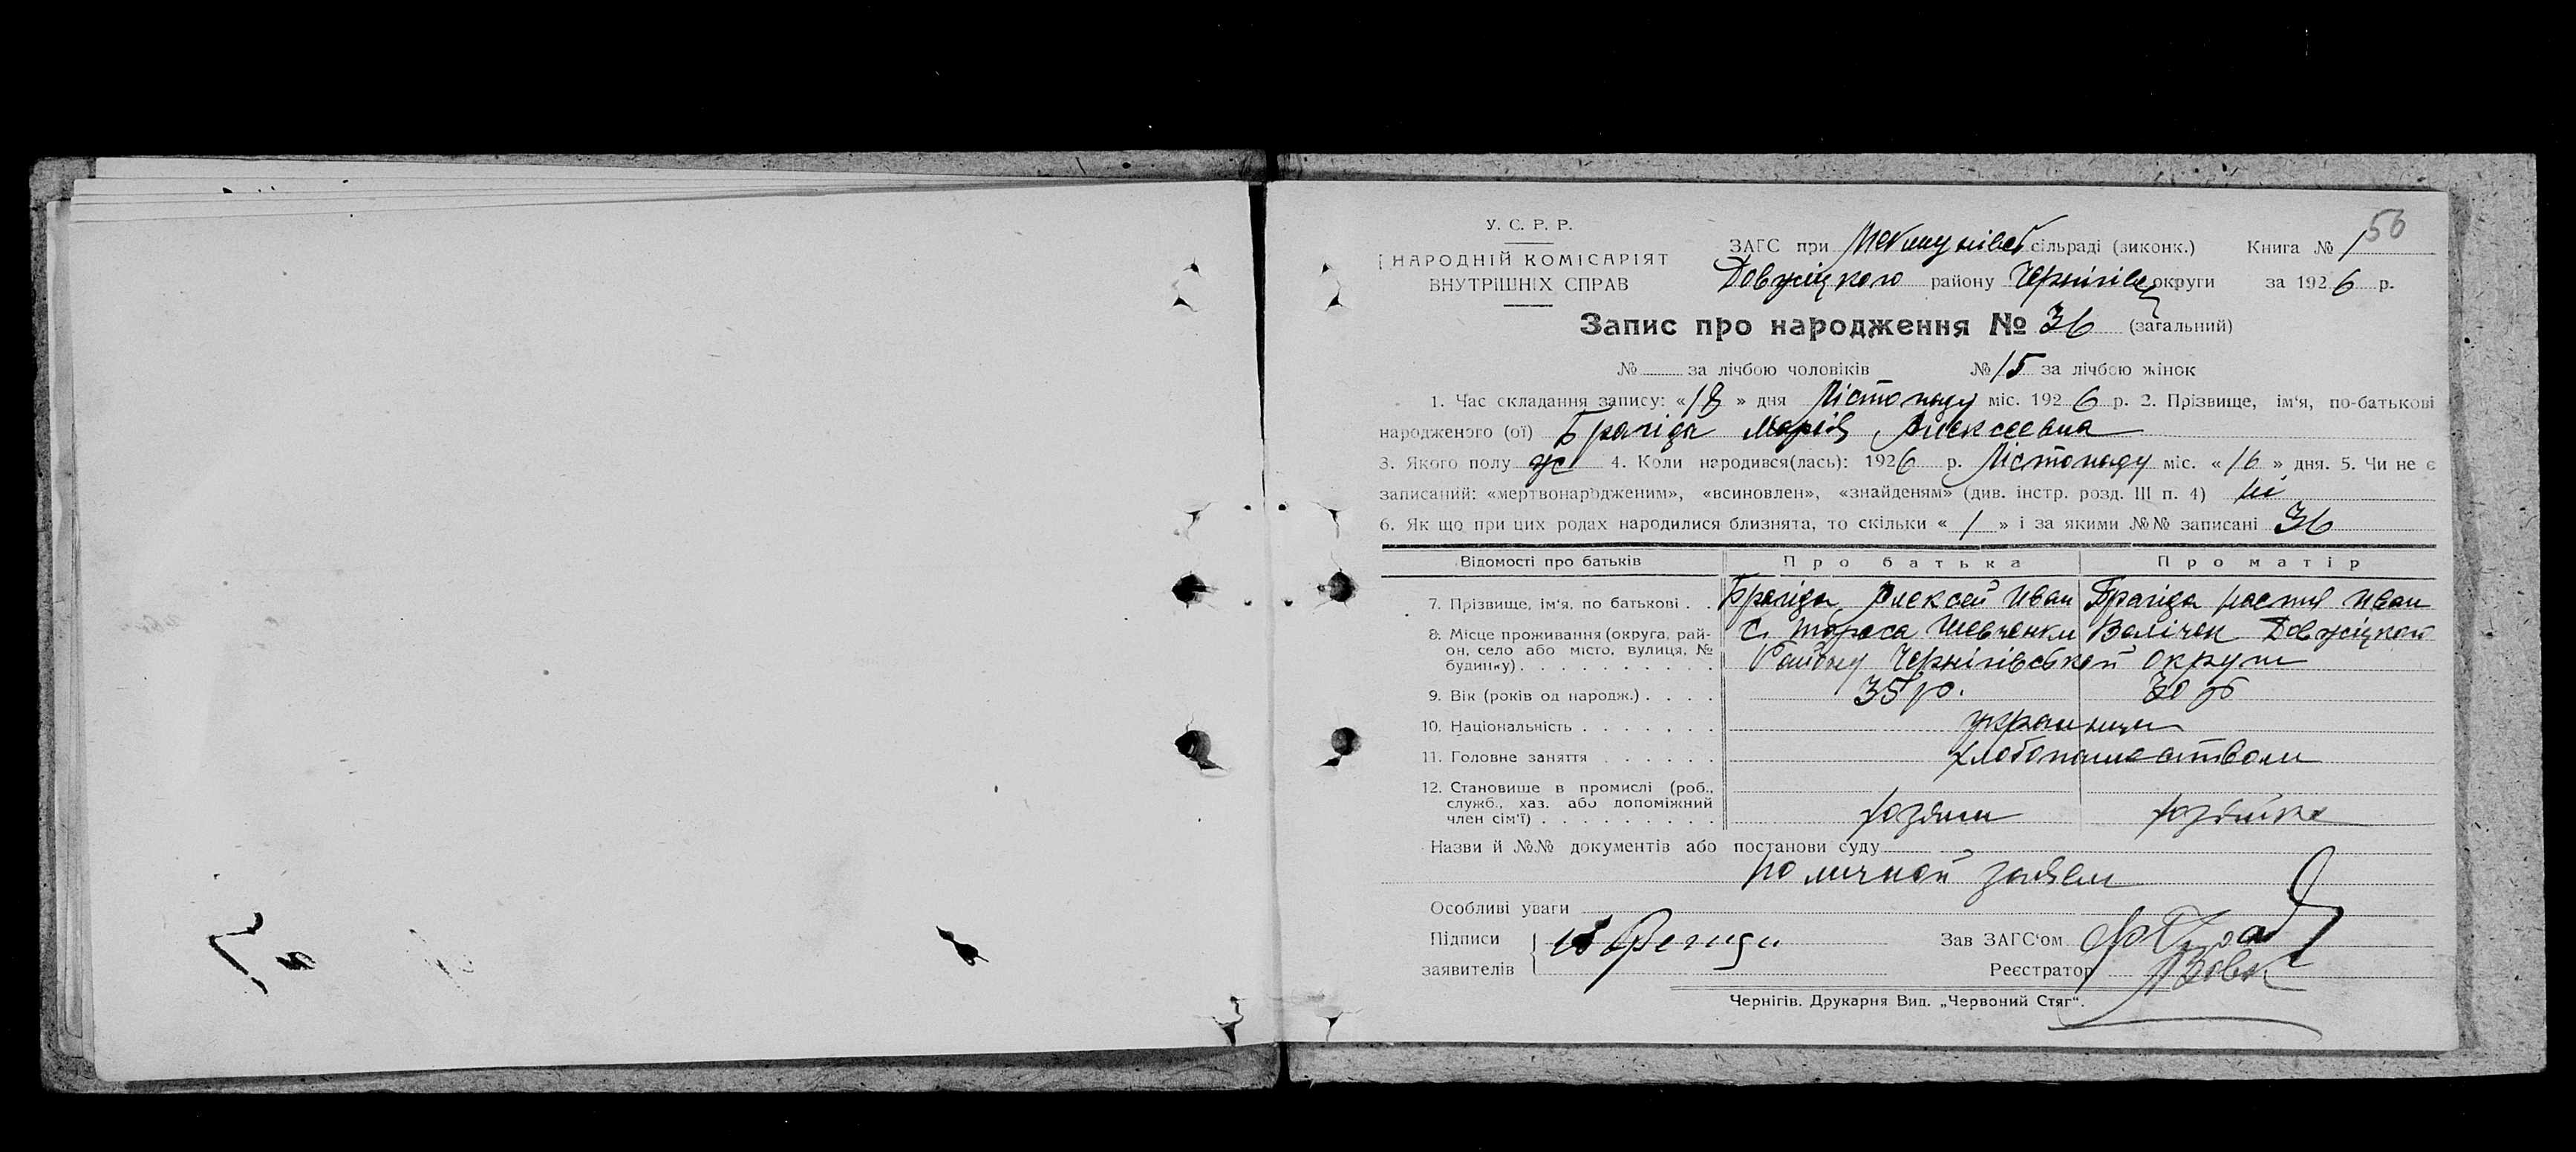 56
У. С. Р. Р.
НАРОДНІЙ КОМІСАРІЯТ
ВНУТРІШНІХ СПРАВ
ЗАГС при сільраді (виконк.) Книга № 1
Довжіцкого району Чернігівс округи за 1926 р.
Запис про народження № 36 (загальний)
№ за лічбою чоловіків № 15 за лічбою жінок
1. Час складання запису: «18» дня Лістопаду міс. 1926 р. 2. Прізвище, ім'я, по-батькові
народженого (ої) Брагіда Марія Алексеевна
3. Якого полу ж 4. Коли народився(лась): 1926 р. Лістопаду міс. «16» дня. 5. Чи не є
записаний: «мертвонародженим», «всиновлен», «знайденям» (див. інстр. розд. III п. 4) ні
6. Як що при цих родах народилися близнята, то скільки «1» і за якими №№ записані 36
Відомості про батьків Про батька Про матір
7. Прізвище, ім'я, по батькові . . Брагида Алексей Иван Брагида Настя Иван
8. Місце проживання (округа, рай-
он, село або місто, вулиця, №
будинку) . . . . . . . . . .
С. Тараса Шевченки Довжіцкого
Району Чернігівськой округи
9. Вік (років од народж.) . . . . 35 р. 30 р
10. Національність . . . . . . . украинци
11. Головне заняття . . . . . . хлобопашеством
12. Становище в промислі (роб.,
служб., хаз. або допоміжний
член сім'ї) . . . . . . . . . хозяин хозяйка
Назви й №№ документів або постанови суду
по личной заяви
Особливі уваги
Підписи
заявителів
Зав ЗАГС'ом
Реєстратор Вовк
Чернігів. Друкарня Вид. „Червоний Стяг".